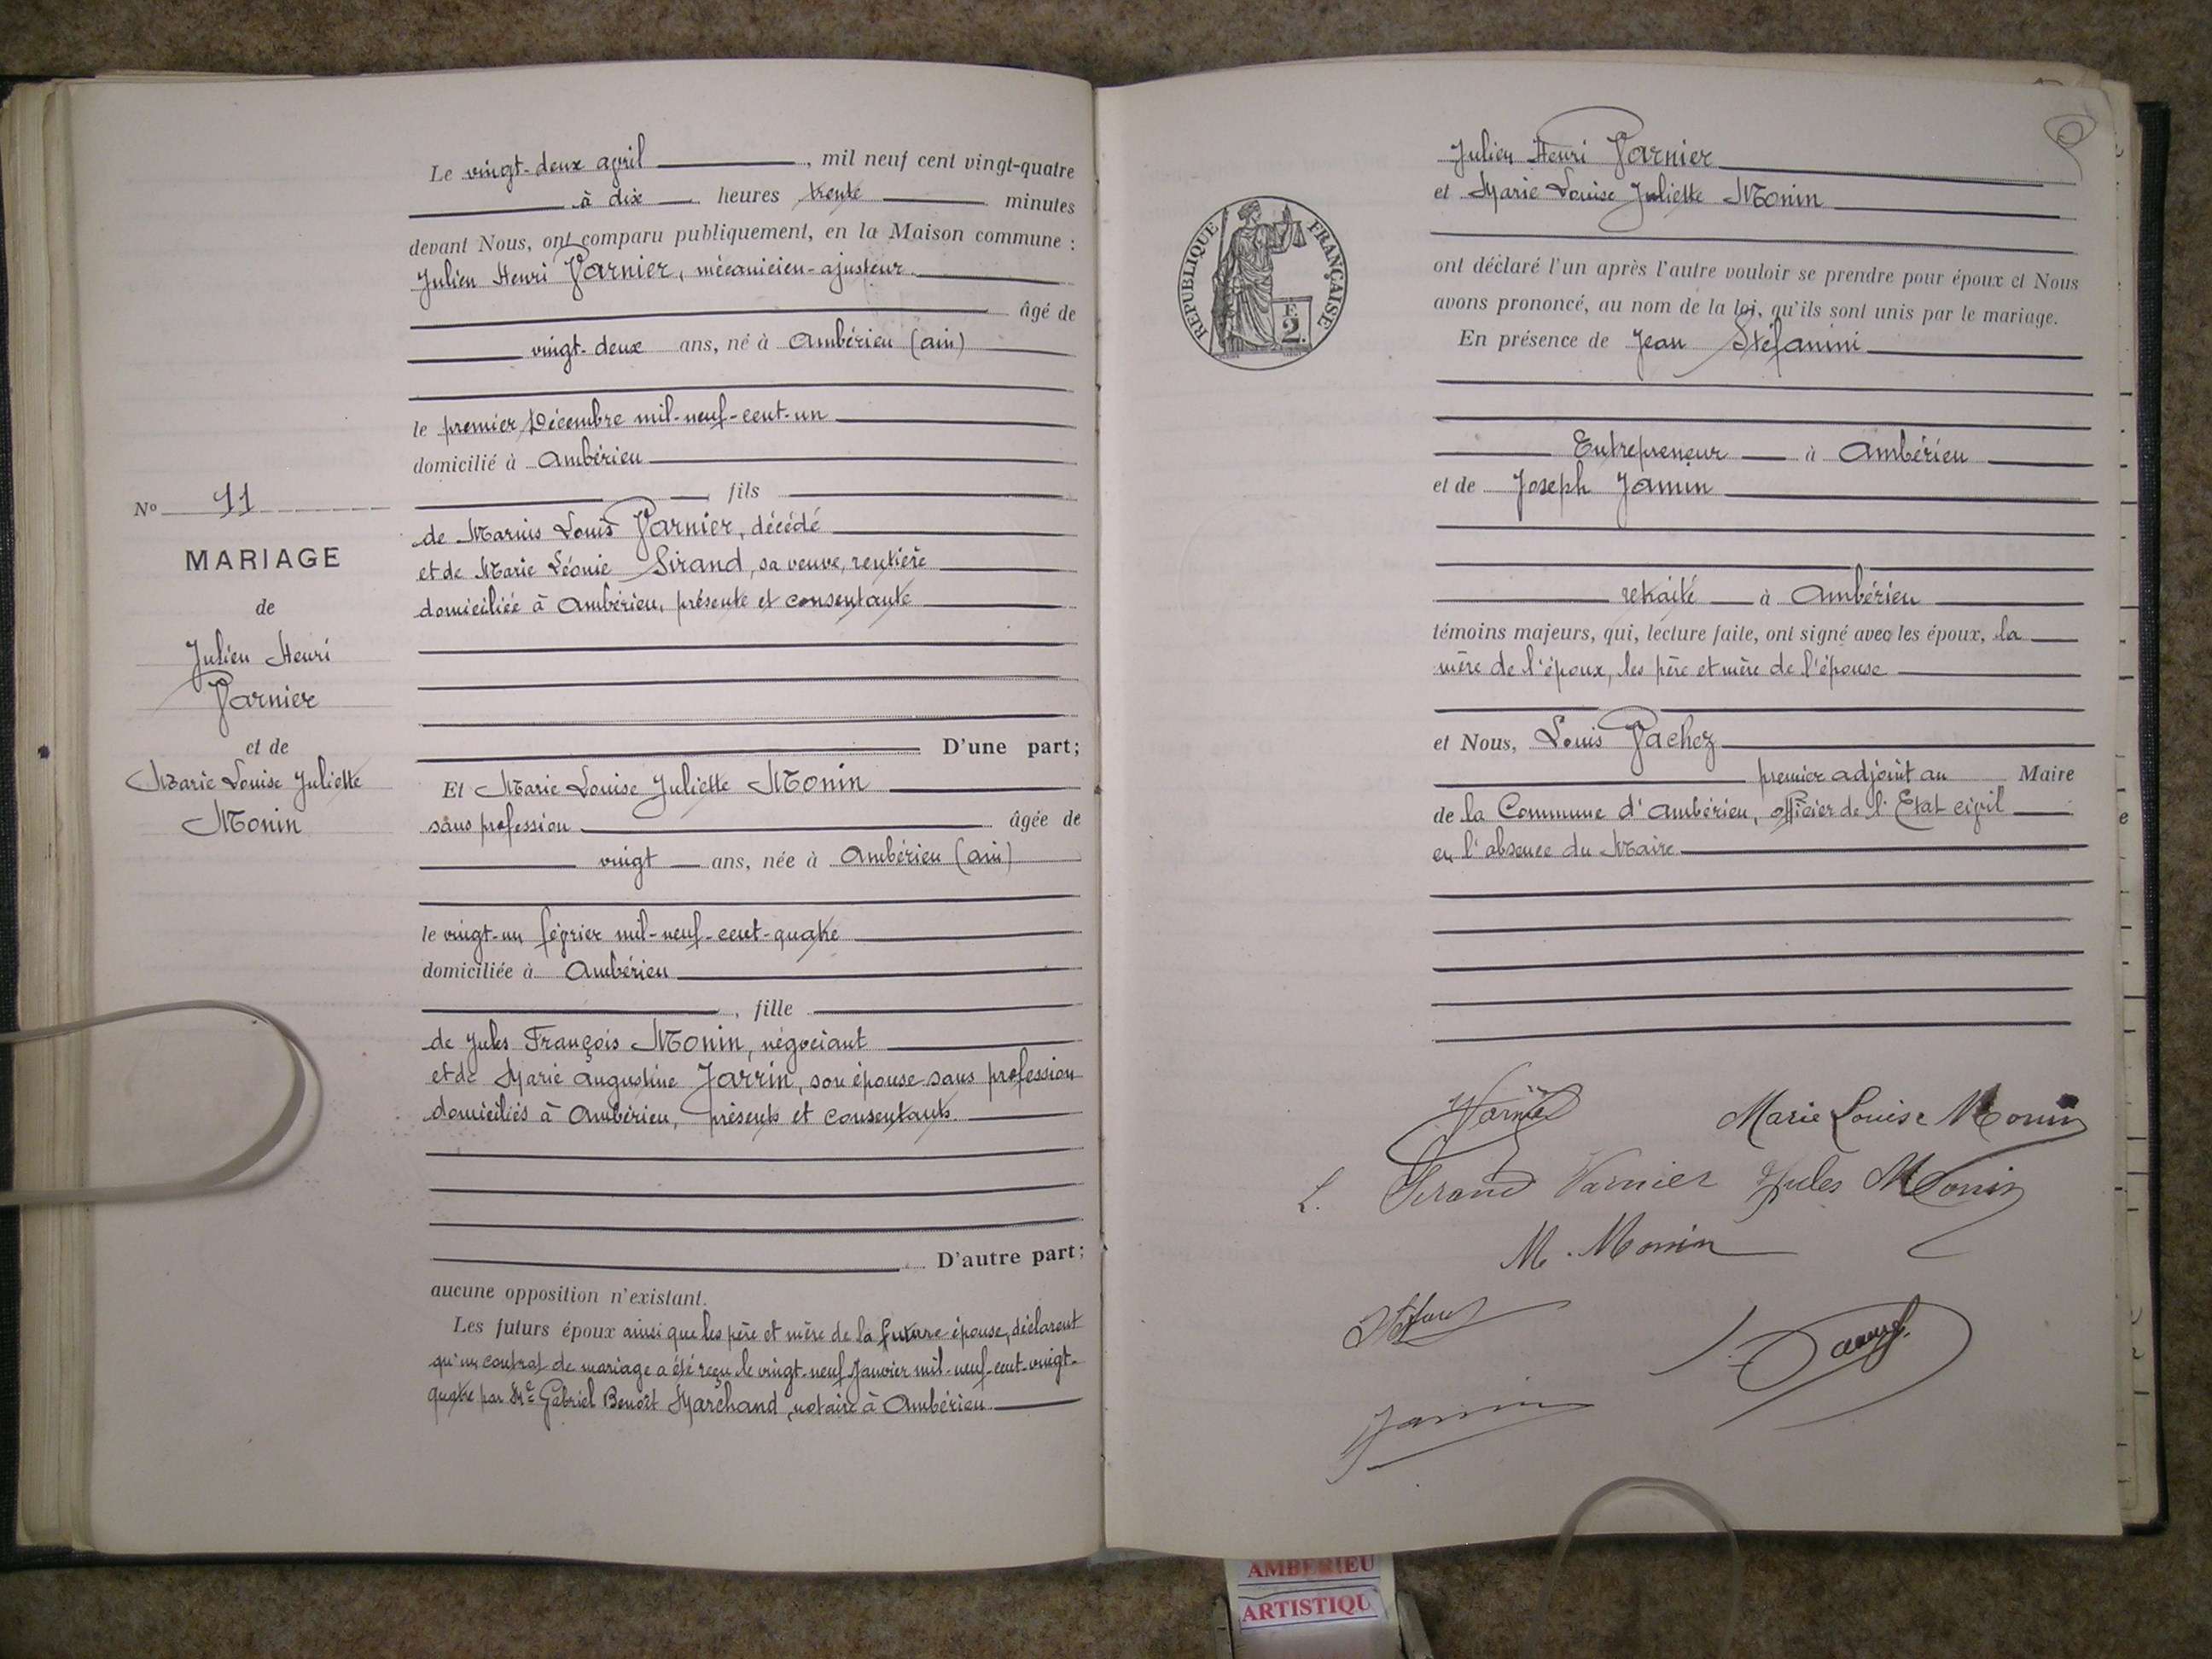 Le vingt-deux avril, mil neuf cent vingt-quatre
à dix heures trente minutes
devant Nous, ont comparu publiquement, en la Maison commune :
Julien Henri Varnier, mécanicien-ajusteur
âgé de
vingt-deux ans, né à Ambérieu (ain)
le premier Décembre mil-neuf-cent-un
domicilié à Ambérieu
fils
de Marius Louis Varnier, décédé
et de Marie Léonie Sirand, sa veuve, rentière
domiciliée à Ambérieu, présente et consentante
D'une part;
Et Marie Louise Juliette Monin
sans profession âgée de
vingt ans, née à Ambérieu (ain)
le vingt-un février mil-neuf-cent-quatre
domiciliée à Ambérieu
, fille
de Jules François Monin, négociant
et de Marie Augustine Jarrin, son épouse sans profession
domiciliés à Ambérieu, présents et consentants
D'autre part;
aucune opposition n'existant.
Les futurs époux ainsi que les père et mère de la future épouse, déclarent
qu'un contrat de mariage a été reçu le vingt-neuf Janvier mil-neuf-cent-vingt-
quatre par Me Gabriel Benoît Marchand, notaire à Ambérieu
No 11
MARIAGE
de
Julien Henri
Varnier
et de
Marie Louise Juliette
Monin
REPUBLIQUE FRANÇAISE
F.
2.
Julien Henri Varnier
et Marie Louise Juliette Monin
ont déclaré l'un après l'autre vouloir se prendre pour époux et Nous
avons prononcé, au nom de la loi, qu'ils sont unis par le mariage.
En présence de Jean Stéfanini
Entrepreneur à Ambérieu
et de Joseph Jamin
retraité à Ambérieu
témoins majeurs, qui, lecture faite, ont signé avec les époux, la
mère de l'époux, les père et mère de l'épouse
et Nous, Louis Vachez
premier adjoint au Maire
de la Commune d'Ambérieu, officier de l'Etat civil
en l'absence du Maire
Varnier Marie Louise Monin
L. Sirand Varnier Jules Monin
M. Monin
Jamin
AMBERIEU
ARTISTIQU